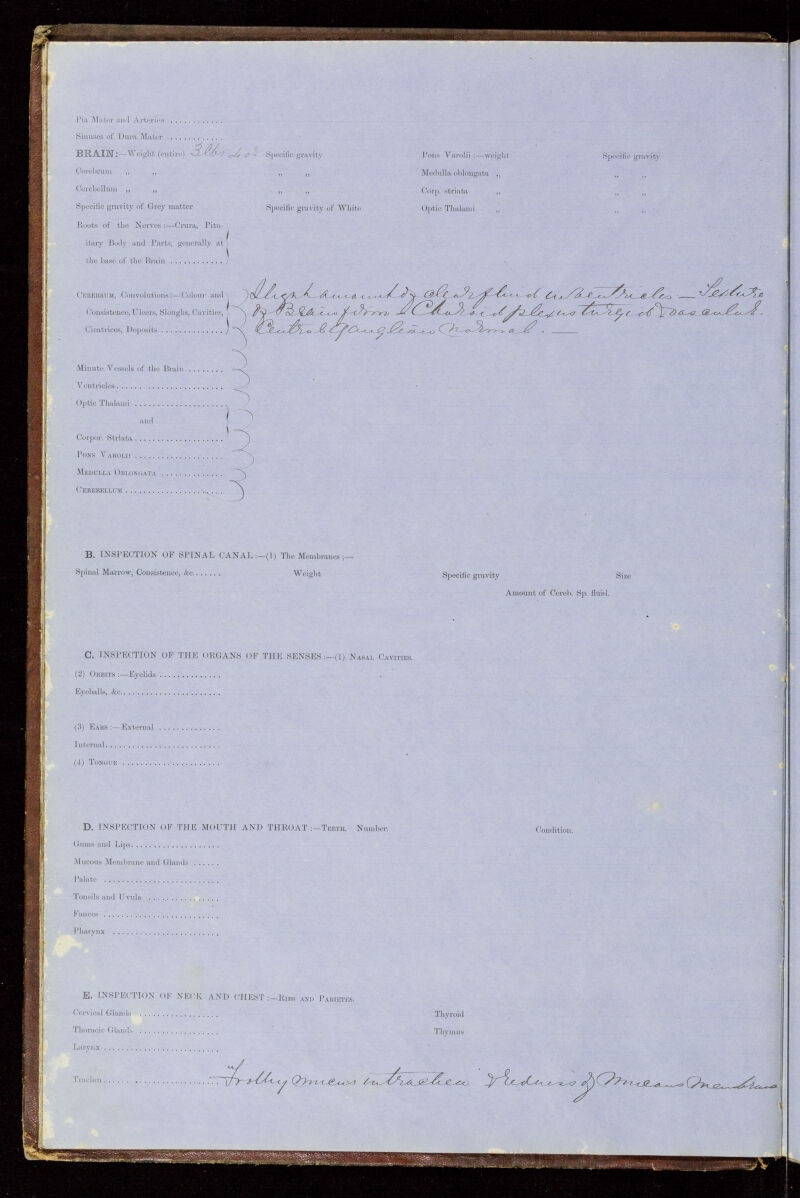 Pia Mater and Arteries ............
Sinuses of Dura Mater ............
BRAIN:—Weight (entire) 3lbs 4oz Specific gravity Pons Varolii :—weight Specific gravity
Cerebrum „ „ „ „ Medulla oblongata „ „ „
Cerebellum „ „ „ „ Corp. striata „ „ „
Specific gravity of Grey matter Specific gravity of White Optic Thalami „ „ „
Roots of the Nerves :—Crura, Pitu-
itary Body and Parts, generally at
the base of the Brain ............
CEREBRUM, Convolutions:—Colour and Slight amount of clear fluid in ventricles — Texture
Consistence, Ulcers, Sloughs, Cavities, of Brain firm — Choroid plexus turgid & vascular.
Cicatrices, Deposits .............. Central Ganglions normal. —
Minute Vessels of the Brain ........
Ventricles........................
Optic Thalami ....................
and
Corpor. Striata....................
PONS VAROLII ....................
MEDULLA OBLONGATA ..............
CEREBELLUM ......................
B. INSPECTION OF SPINAL CANAL :—(1) The Membranes ;—
Spinal Marrow, Consistence, &c...... Weight Specific gravity Size
Amount of Cereb. Sp. fluid.
C. INSPECTION OF THE ORGANS OF THE SENSES :—(1) NASAL CAVITIES.
(2) ORBITS :—Eyelids ..............
Eyeballs, &c......................
(3) EARS :—External ..............
Internal..........................
(4) TONGUE ......................
D. INSPECTION OF THE MOUTH AND THROAT :—TEETH. Number. Condition.
Gums and Lips....................
Mucous Membrane and Glands ......
Palate ..........................
Tonsils and Uvula ................
Fauces ..........................
Pharynx ........................
E. INSPECTION OF NECK AND CHEST :—RIBS AND PARIETES.
Cervical Glands .................. Thyroid
Thoracic Glands .................. Thymus
Larynx ..........................
Trachea.......................... Frothy mucus in trachea & redness of Mucous Membrane